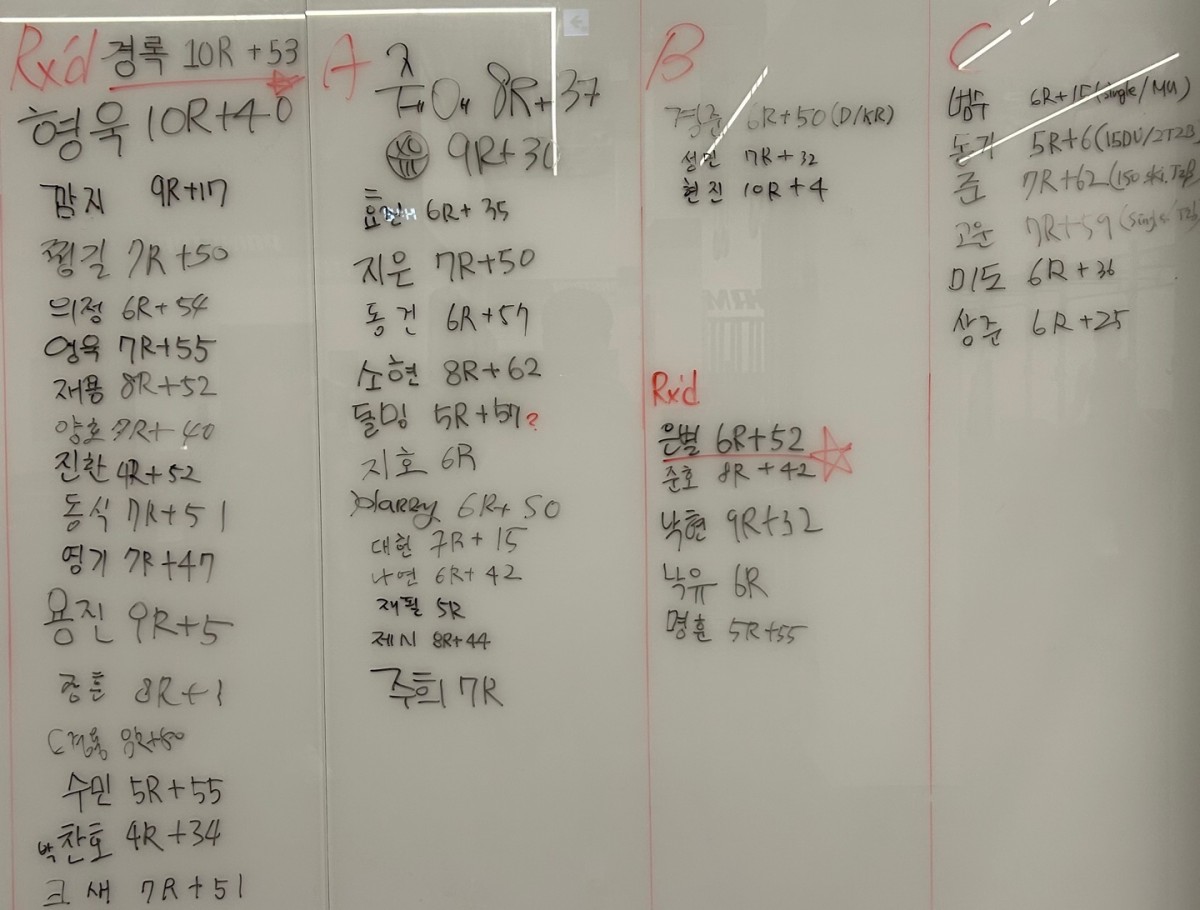 Rx'd 경록 10R + 53
형욱 10R+40
깜지 9R+17
찡길 7R+50
의정 6R+54
영욱 7R+55
재용 8R+52
양호 7R+40
진환 4R+52
동식 7R+51
영기 7R+47
용진 9R+5
8R+1
수민 5R+55
박찬호 4R+34
크새 7R+51
A
8R+37
9R+30
6R+35
지은 7R+50
동건 6R+57
소현 8R+62
돌밍 5R+57?
지호 6R
Harry 6R+50
대헌 7R+15
나연 6R+42
재필 5R
제시 8R+44
주희 7R
B
경준 6R+50 (D/KR)
성민 7R+32
현진 10R+4
Rx'd
은별 6R+52
준호 8R+42
낙현 9R+32
낙유 6R
명훈 5R+55
C
범수 6R+15 (single/MU)
5R+6 (15DU/2T2B)
준 7R+62
고운 7R+59
미도 6R+36
상준 6R+25